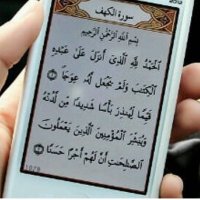 سورة الكهف
بِسْمِ اللَّهِ الرَّحْمَٰنِ الرَّحِيمِ
الْحَمْدُ لِلَّهِ الَّذِي أَنزَلَ عَلَىٰ عَبْدِهِ
الْكِتَابَ وَلَمْ يَجْعَل لَّهُ عِوَجًا
قَيِّمًا لِّيُنذِرَ بَأْسًا شَدِيدًا مِّن لَّدُنْهُ
وَيُبَشِّرَ الْمُؤْمِنِينَ الَّذِينَ يَعْمَلُونَ
الصَّالِحَاتِ أَنَّ لَهُمْ أَجْرًا حَسَنًا